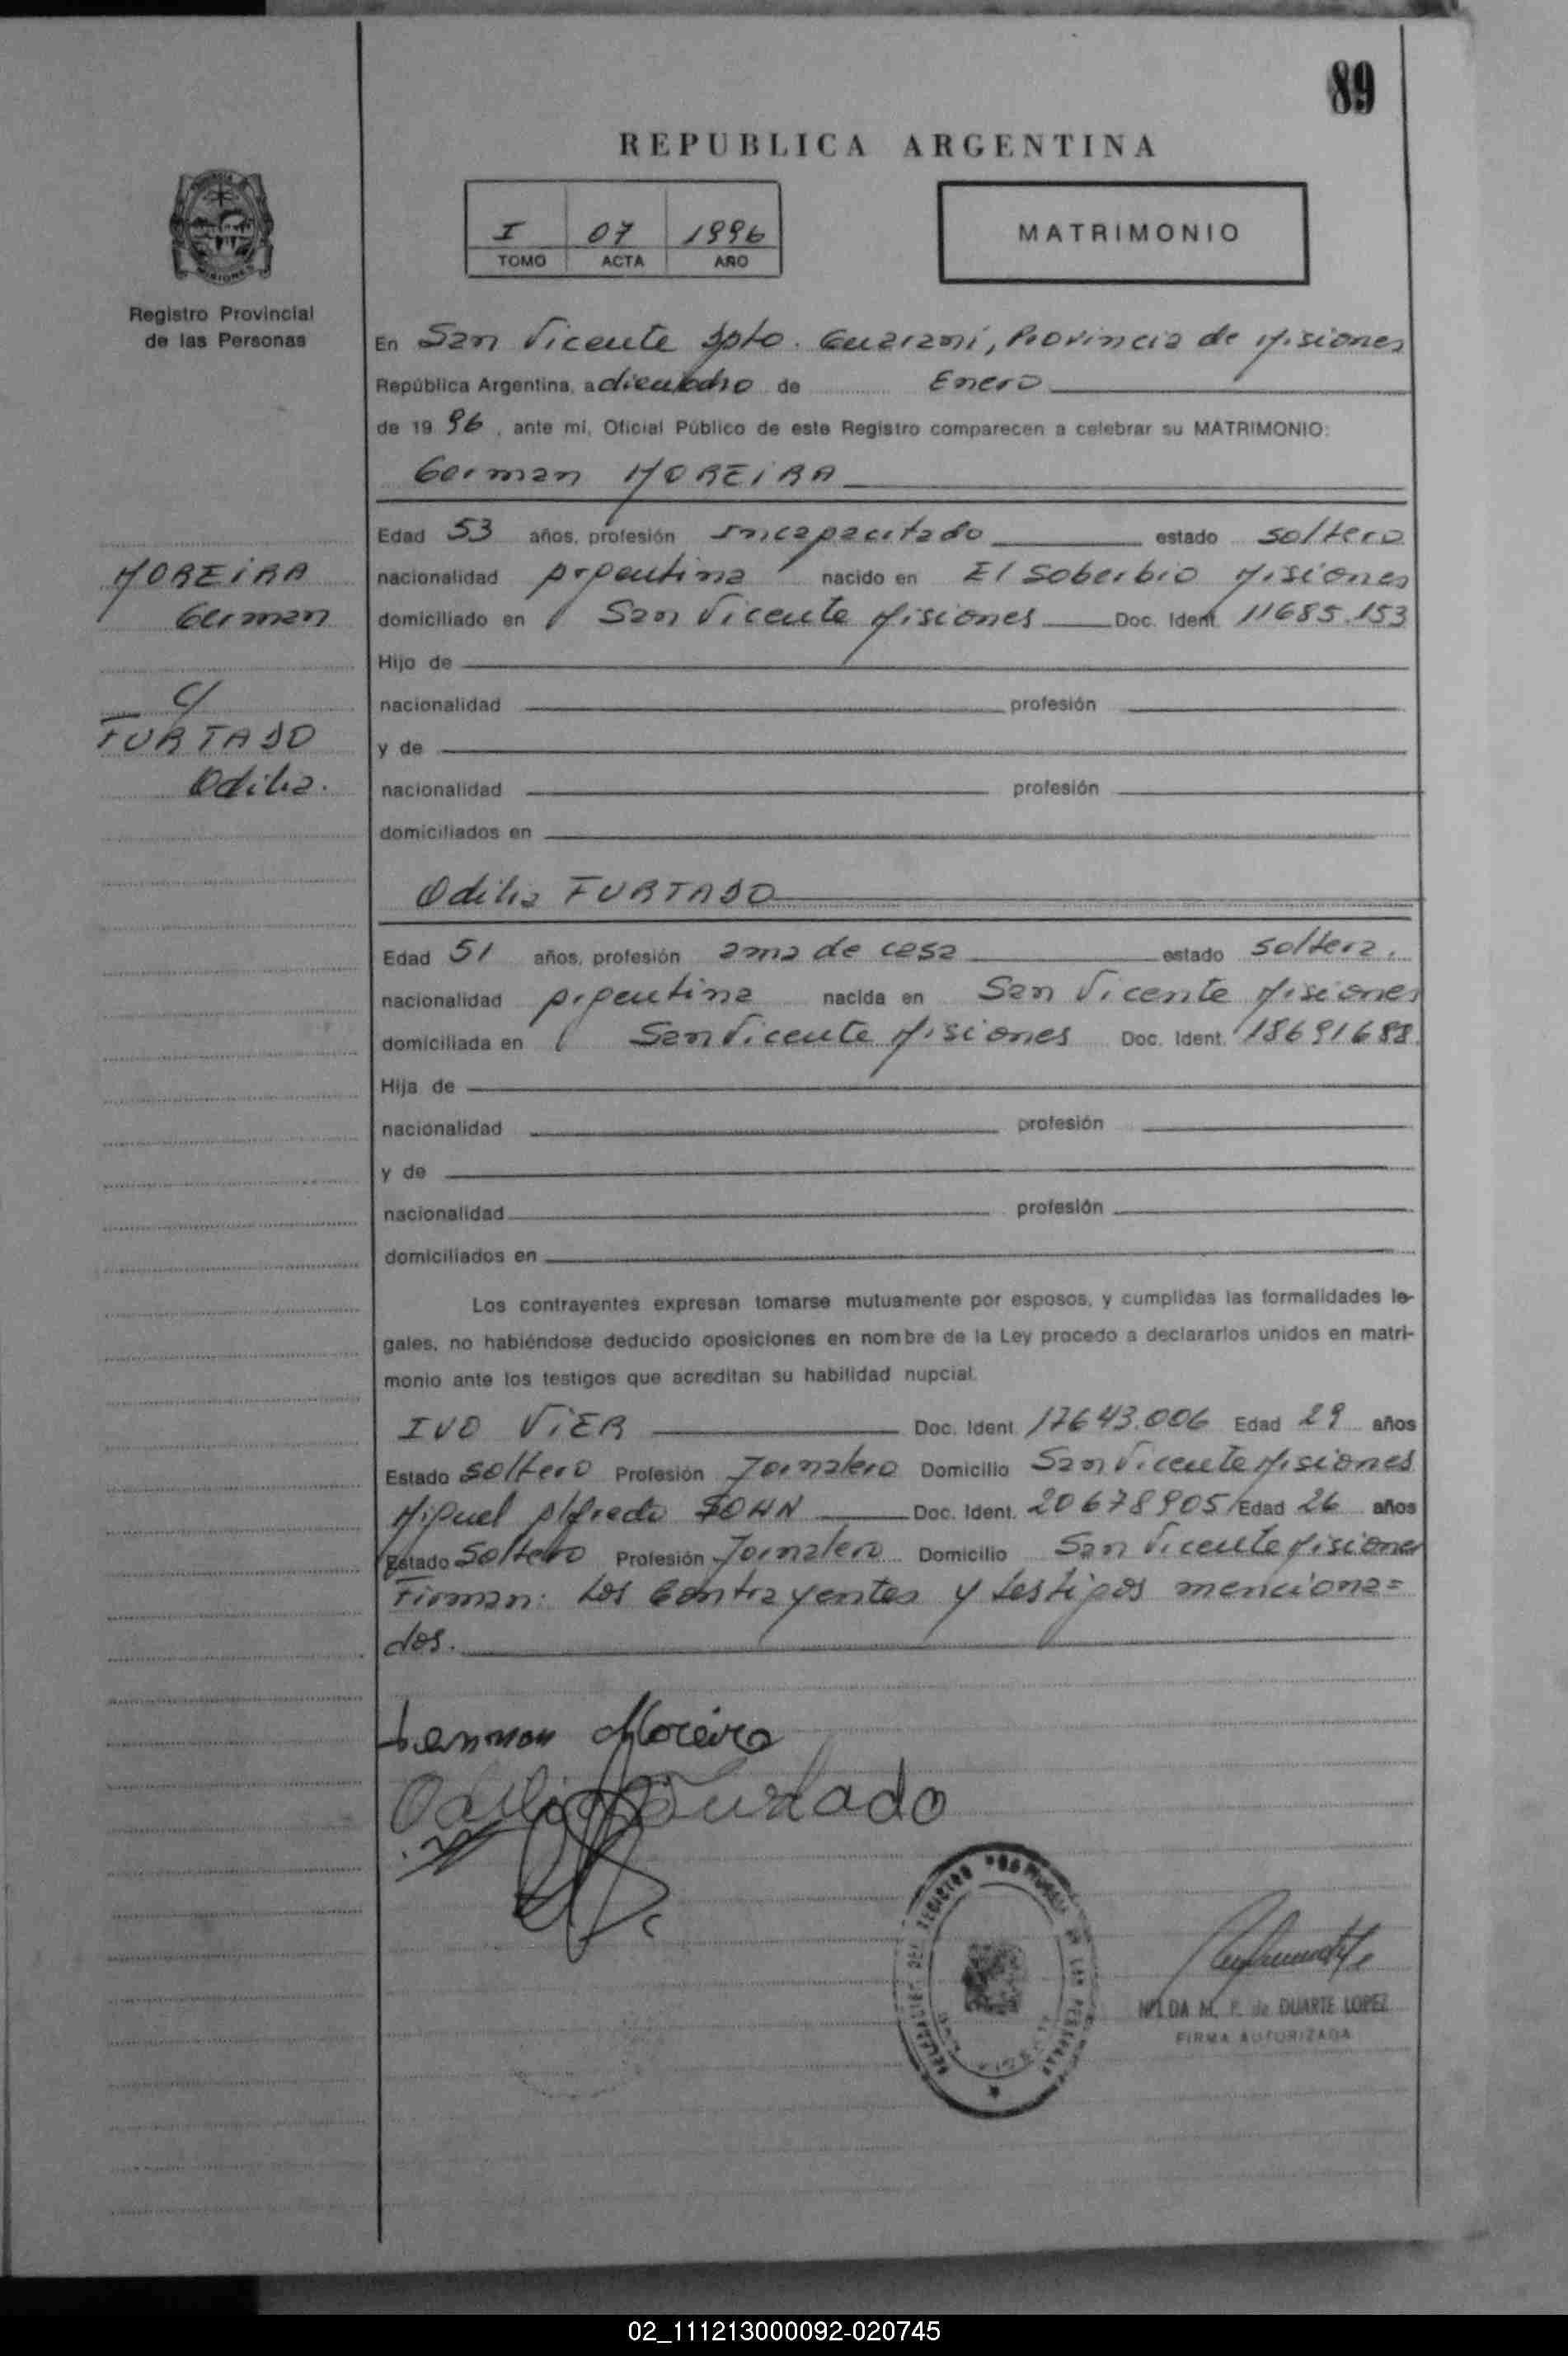 89
REPUBLICA ARGENTINA
I 07 1996
TOMO ACTA AÑO
MATRIMONIO
Registro Provincial
de las Personas
En San Vicente Dpto. Guaraní, Provincia de Misiones
República Argentina, a de Enero
de 19 96, ante mí, Oficial Público de este Registro comparecen a celebrar su MATRIMONIO:
German MOREIRA
Edad 53 años, profesión Incapacitado estado soltero
nacionalidad Argentina nacido en El Soberbio Misiones
domiciliado en San Vicente Misiones Doc. Ident. 11685.153
Hijo de
nacionalidad profesión
y de
nacionalidad profesión
domiciliados en
MOREIRA
German
c/
FURTADO
Odilia.
Odilia FURTADO
Edad 51 años, profesión ama de casa estado soltera.
nacionalidad Argentina nacida en San Vicente Misiones
domiciliada en San Vicente Misiones Doc. Ident. 18691688.
Hija de
nacionalidad profesión
y de
nacionalidad profesión
domiciliados en
Los contrayentes expresan tomarse mutuamente por esposos, y cumplidas las formalidades le-
gales, no habiéndose deducido oposiciones en nombre de la Ley procedo a declararlos unidos en matri-
monio ante los testigos que acreditan su habilidad nupcial.
IVO VIER Doc. Ident. 17643.006 Edad 29 años
Estado soltero Profesión Jornalero Domicilio San Vicente Misiones
Miguel Alfredo Doc. Ident. 20678905 Edad 26 años
Estado Soltero Profesión Jornalero Domicilio San Vicente Misiones
Firman: Los Contrayentes y testigos menciona=
dos.
German Moreira
Odilia Furtado
DE DUARTE LOPEZ
FIRMA AUTORIZADA
02_111213000092-020745